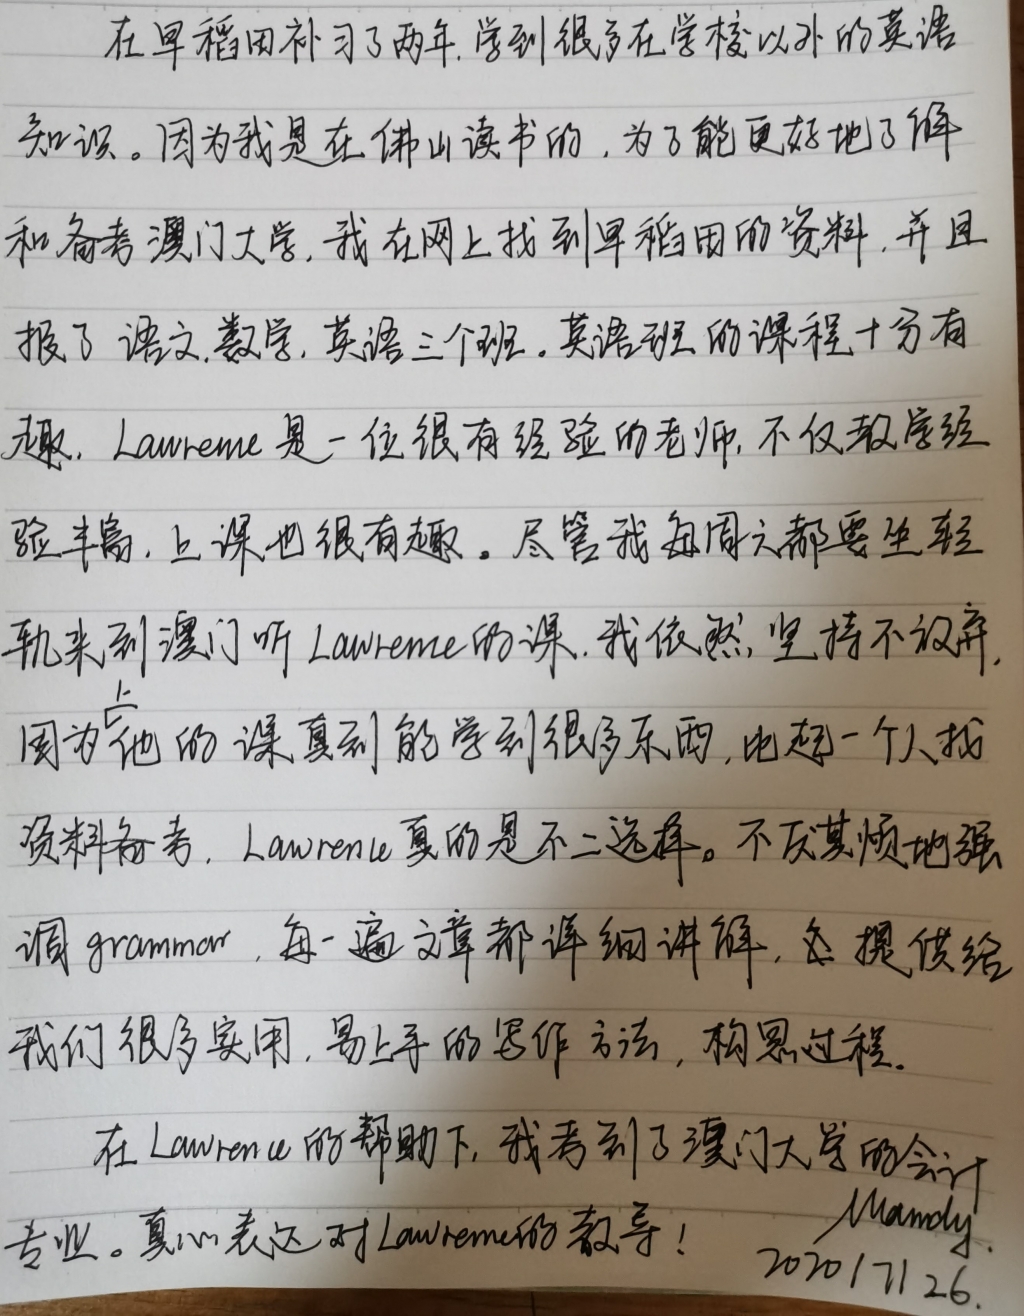 在早稻田补习了两年,学到很多在学校以外的英语
知识。因为我是在佛山读书的,为了能更好地了解
和备考澳门大学,我在网上找到早稻田的资料,并且
报了语文,数学,英语三个班。英语班的课程十分有
趣,Lawrence是一位很有经验的老师,不仅教学经
验丰富,上课也很有趣。尽管我每周六都要坐轻
轨来到澳门听Lawrence的课,我依然坚持不放弃,
因为上他的课真到能学到很多东西,比起一个人找
资料备考,Lawrence真的是不二选择。不厌其烦地强
调grammar,每一遍文章都详细讲解,提供给
我们很多实用,易上手的写作方法,构思过程。
在Lawrence的帮助下,我考到了澳门大学的会计
专业。真心表达对Lawrence的教导!
Mandy.
2020/7/26.